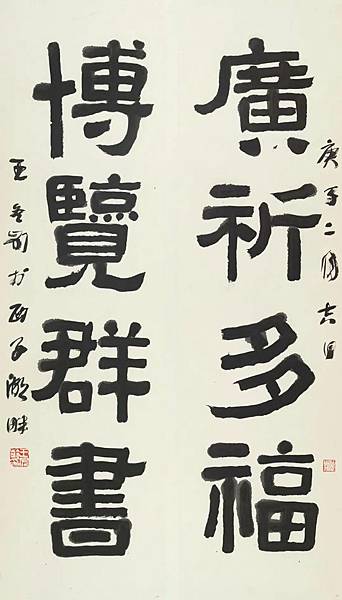 庚午二月吉日
廣祈多福
博覽群書
王冬齡於西子湖畔